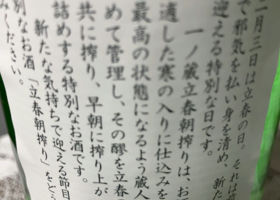 二月三日は立春の日。それは
で邪気を払い身を清め、新た
迎える特別な日です。
一ノ蔵立春朝搾りは、お
適した寒の入りに仕込みを
最高の状態になるよう蔵人
めて管理し、その醪を立春
共に搾り、早朝に搾り上が
詰めする特別なお酒です。
新たな気持ちで迎える節目
別なお酒「立春朝搾り」をど
みください。